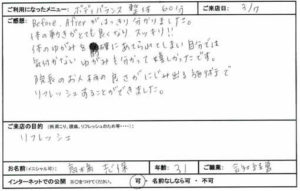 ご利用になったメニュー: ボディバランス整体 60分 ご来店日: 3/17
ご感想:
Before, Afterがはっきり分かりました。
体の動きがとても良くなり スッキリ!!
体のゆがみを 確にあてられてしまい自分では
気付かない ゆがみも分かって嬉しかったです。
院長のお人柄の良さがにじみ出る施術で
リフレッシュすることができました。
ご来店の目的 (例:肩こり、腰痛、リフレッシュのため等・・・):
リフレッシュ
お名前(イニシャル可): 年齢: 31 ご職業: 会社経営
インターネットでの公開 ※○をつけてください。 可 ・ 名前なしなら可 ・ 不可